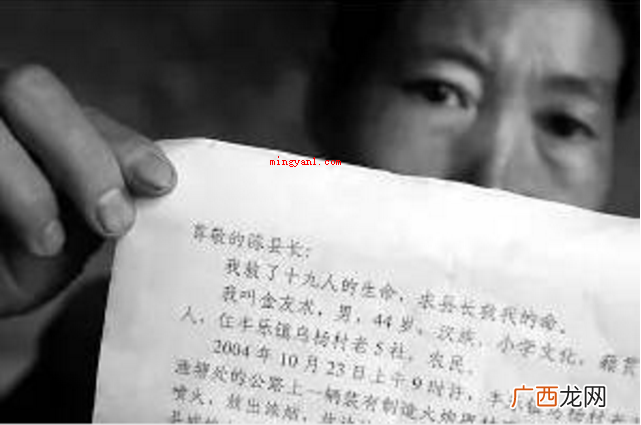 mingyan1.com
尊敬的陈县长:
我救了十九人的生命,求县长救我的命。
我叫金有术,男,44岁,汉族,小学文化,籍贯
人,住丰乐镇乌杨村老5社,农民。
2004年10月23日上午9时许,丰乐镇乌杨村
处的公路上一辆装有制造火炮
喷火,放出浓烟,
广西龙网